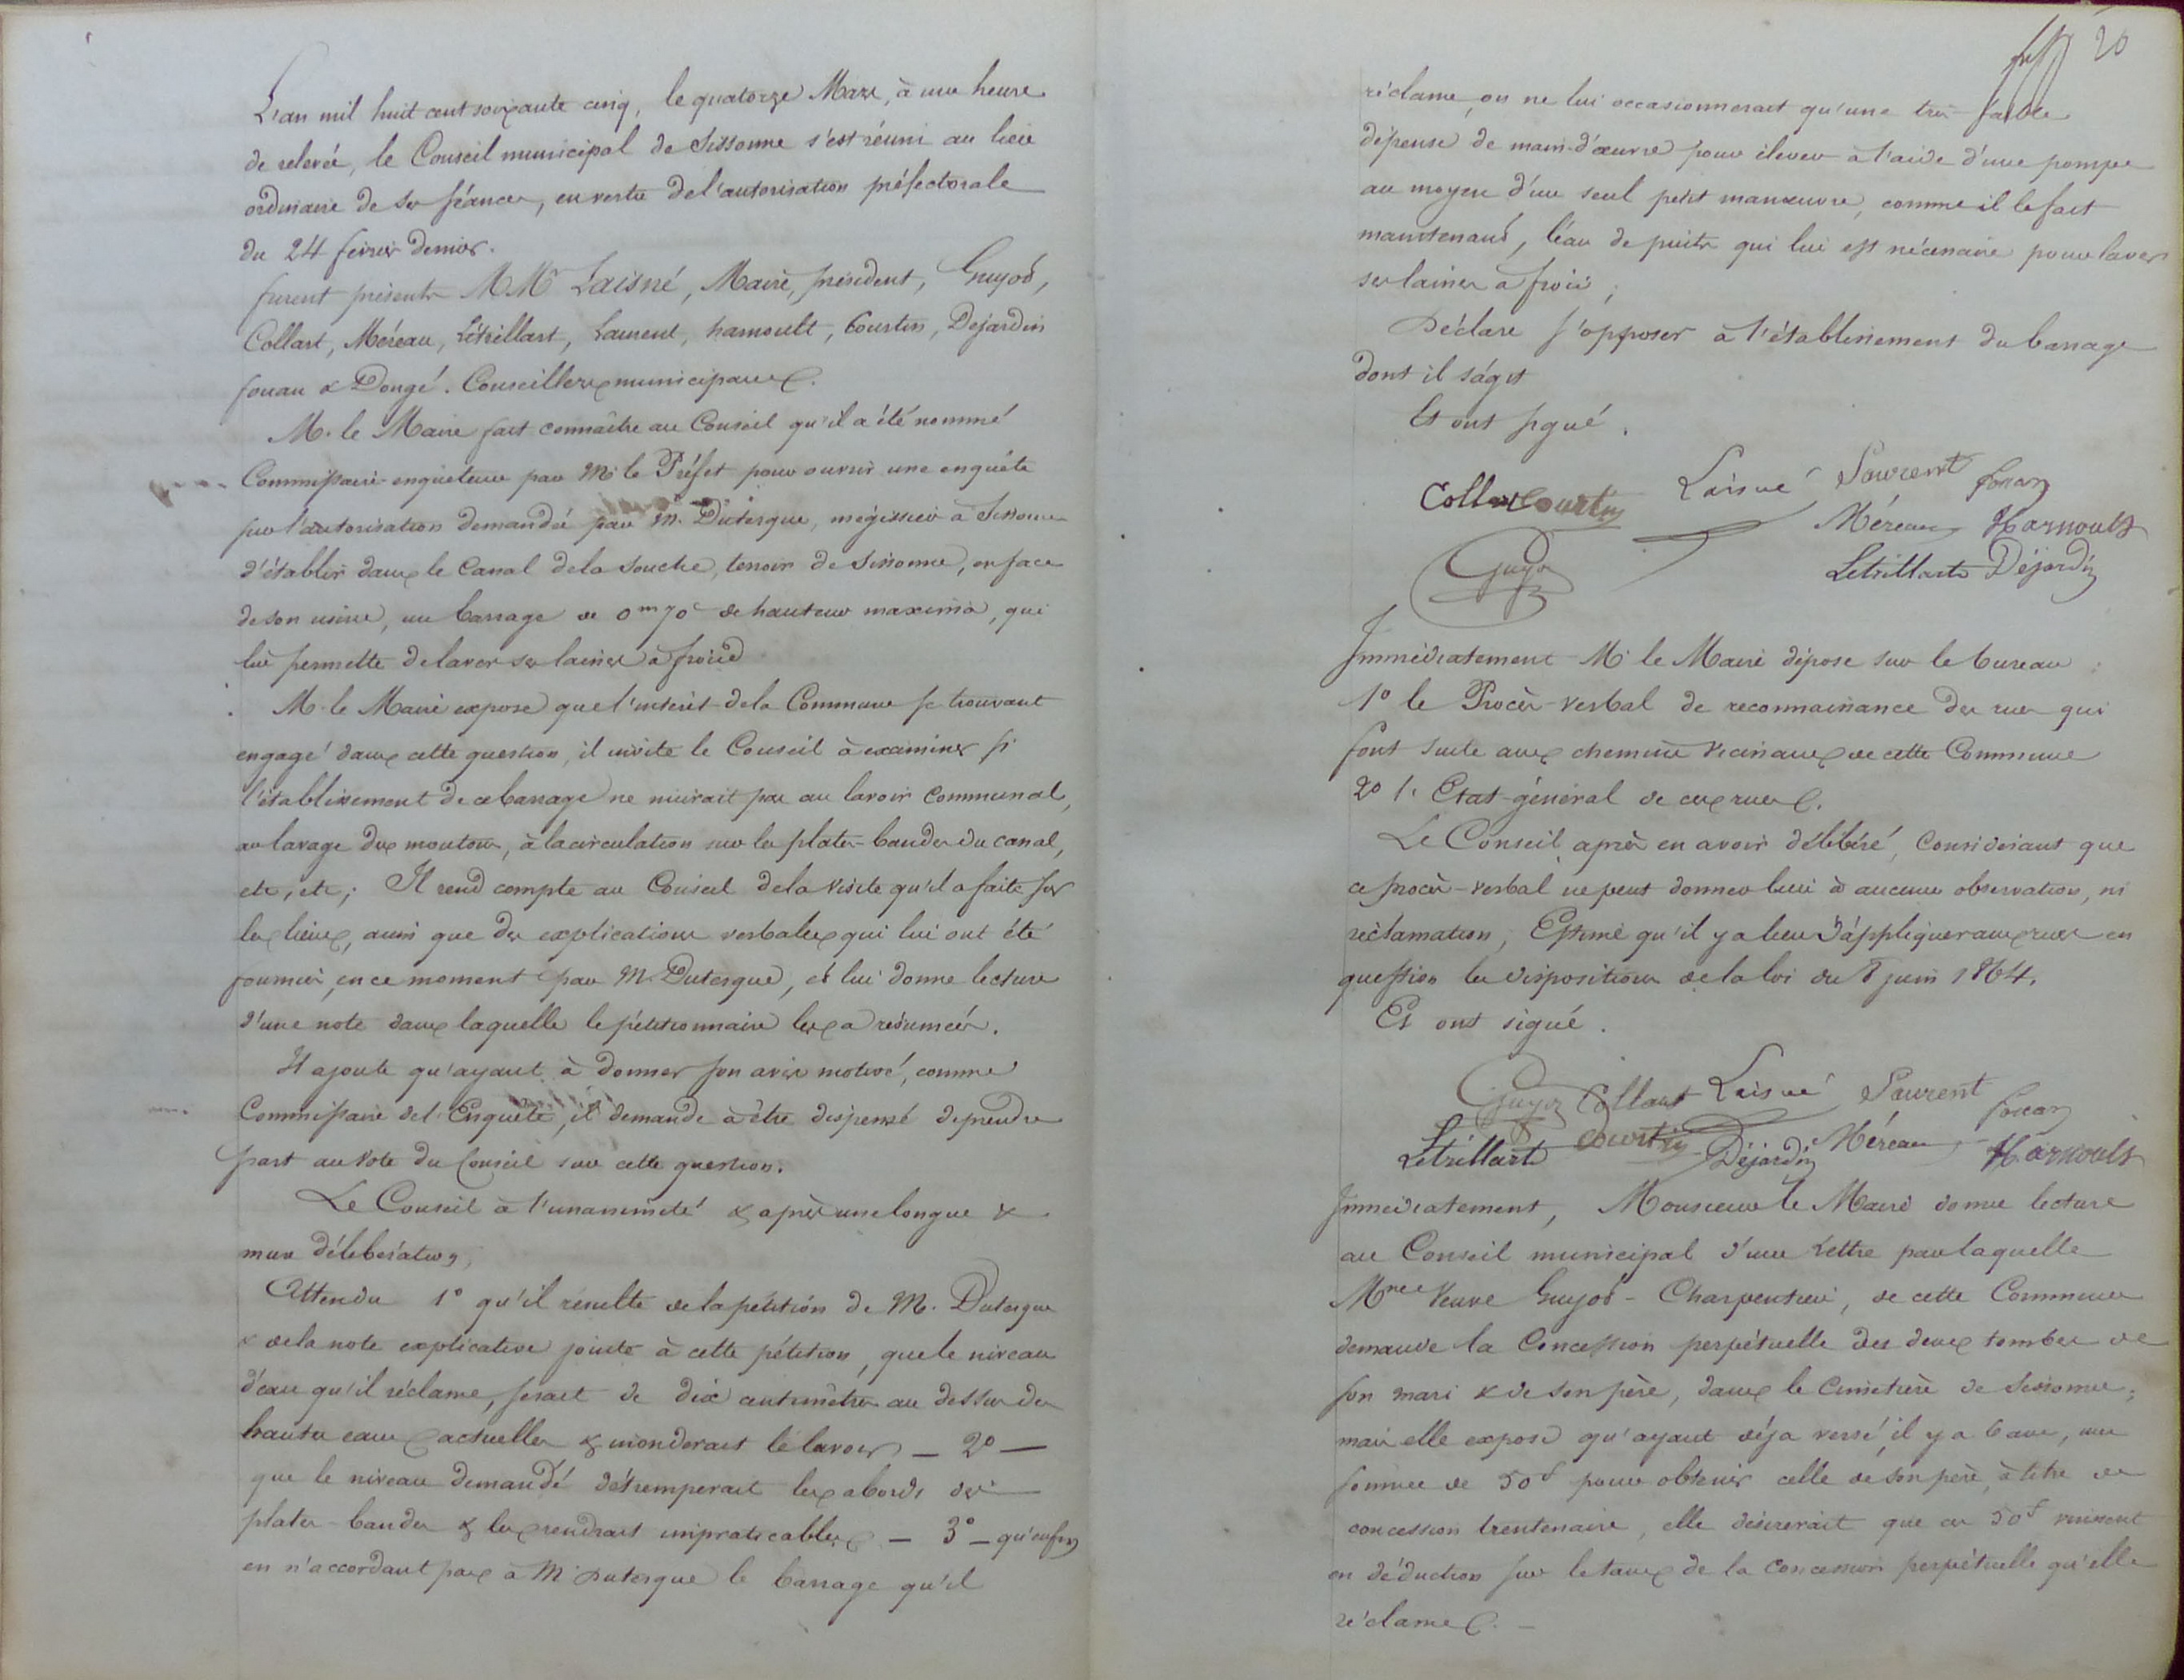 L'an mil huit cent soixante cinq, le quatorze Mars, à une heure
de relevée, le Conseil municipal de Sissonne s'est réuni au lieu
ordinaire de ses séances, en vertu de l'autorisation préfectorale
du 24 février dernier.
furent présents MM. Laisné, Maire, président, Guyot,
Collart, Méreau, Létrillart, Laurent, harnoult, Courtin, Dejardin
fouan & Dongé. Conseillers municipaux.
M. le Maire fait connaître au Conseil qu'il a été nommé
Commissaire-enquêteur par Mr le Préfet pour ouvrir une enquête
sur l'autorisation demandée par M. Duterque, mégissier à Sissonne
d'établir dans le Canal de la Souche, terroir de Sissonne, en face
de son usine, un barrage de 0m70c de hauteur maxima, qui
lui permette de laver ses laines à froid
M. le Maire expose que l'intérêt de la Commune se trouvant
engagé dans cette question, il invite le Conseil à examiner si
l'établissement de ce barrage ne nuirait pas au lavoir Communal,
au lavage des moutons, à la circulation sur les plates-bandes du canal,
etc, etc; Il rend compte au Conseil de la visite qu'il a faite sur
les lieux, ainsi que des explications verbales qui lui ont été
fournies, en ce moment par M. Duterque, et lui donne lecture
d'une note dans laquelle le pétitionnaire les a résumées.
Il ajoute qu'ayant à donner son avis motivé, comme
Commissaire de l'Enquête, il demande à être dispensé de prendre
part au vote du Conseil sur cette question.
Le Conseil à l'unanimité & après une longue &
mure délibération,
Attendu 1° qu'il résulte de la pétition de M. Duterque
& de la note explicative jointe à cette pétition, que le niveau
d'eau qu'il réclame, serait de dix centimètres au dessus des
hautes eaux actuelles & inonderait le lavoir — 2° —
que le niveau demandé détremperait les abords des
plates-bandes & les rendrait impraticables — 3° — qu'enfin
en n'accordant pas à M. Duterque le barrage qu'il
20
réclame, on ne lui occasionnerait qu'une très-faible
dépense de main-d'œuvre pour élever à l'aide d'une pompe
au moyen d'un seul petit manœuvre, comme il le fait
maintenant, l'eau de puits qui lui est nécessaire pour laver
ses laines à froid;
Déclare s'opposer à l'établissement du barrage
dont il s'agit
Et ont signé.
Collart Courtin Laisné Laurent fouan
Méreau Harnoult
Guyot
Letrillart Déjardin
Immédiatement Mr le Maire dépose sur le bureau
1° le Procès-verbal de reconnaissance des rues qui
font suite aux chemins vicinaux de cette Commune
2° l'Etat-général de ces rues.
Le Conseil, après en avoir délibéré, Considérant que
ce procès-verbal ne peut donner lieu à aucune observation, ni
réclamation, Estime qu'il y a lieu d'appliquer aux rues en
question les dispositions de la loi du 8 juin 1864.
Et ont signé.
Guyot Collart Laisné Laurent fouan
Letrillart Courtin Déjardin Méreau Harnoult
Immédiatement, Monsieur le Maire donne lecture
au Conseil municipal d'une lettre par laquelle
Mme Veuve Guyot-Charpentier, de cette Commune
demande la Concession perpétuelle des deux tombes de
son mari & de son père, dans le Cimetière de Sissonne;
mais elle expose qu'ayant déjà versé, il y a 6 ans, une
somme de 50f pour obtenir celle de son père, à titre de
concession trentenaire, elle désirerait que ces 50f vinssent
en déduction sur le taux de la concession perpétuelle qu'elle
réclame. —